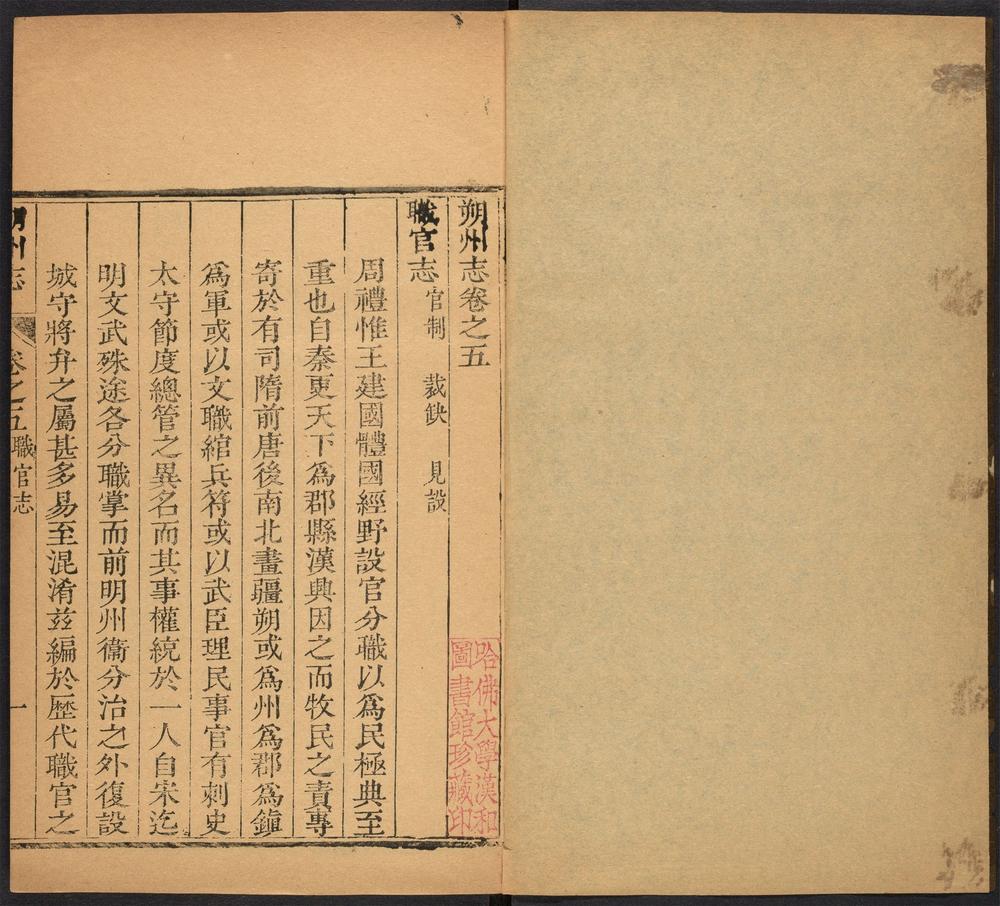 朔州志卷之五
職官志 官制 裁缺 見設
周禮惟王建國體國經野設官分職以爲民極典至
重也自秦更天下爲郡縣漢興因之而牧民之責專
寄於有司隋前唐後南北畫疆朔或爲州爲郡爲鎭
爲軍或以文職綰兵符或以武臣理民事官有刺史
太守節度總管之異名而其事權統於一人自宋迄
明文武殊途各分職掌而前明州衞分治之外復設
城守將弁之屬甚多易至混淆玆編於歷代職官之
朔州志 卷之五 職官志 一
哈佛大學漢和
圖書館珍藏印